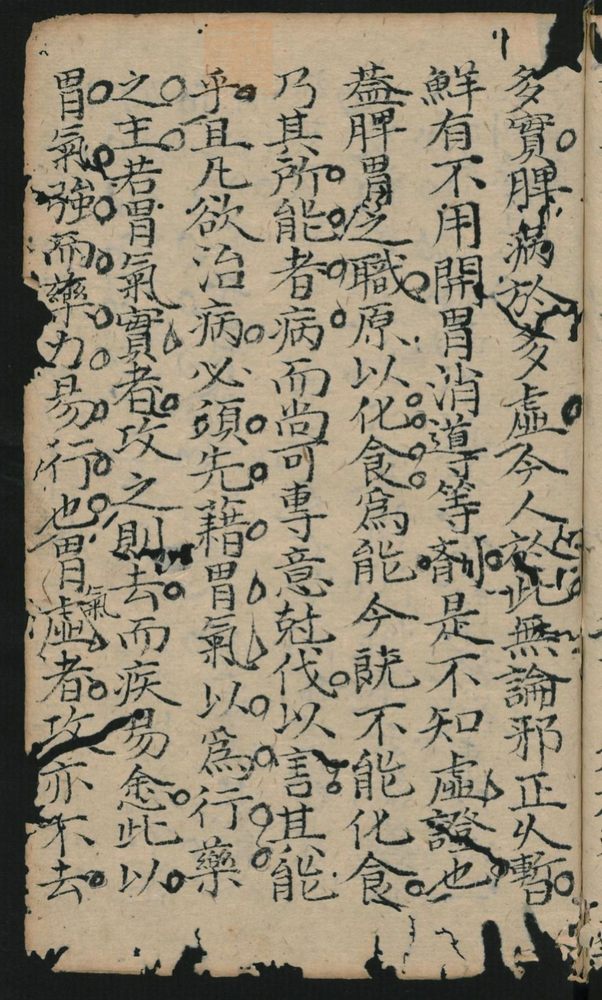 多實脾病於多虛今人於此無論邪正久暫
鮮有不用開胃消導等劑是不知虛證也
蓋脾胃之職原以化食爲能今既不能化食
乃其所能者病而尚可專意尅伐以害其能
乎且凡欲治病必須先藉胃氣以爲行藥
之主若胃氣實者攻之則去而疾易愈此以
胃氣強而藥力易行也胃氣虛者攻亦不去